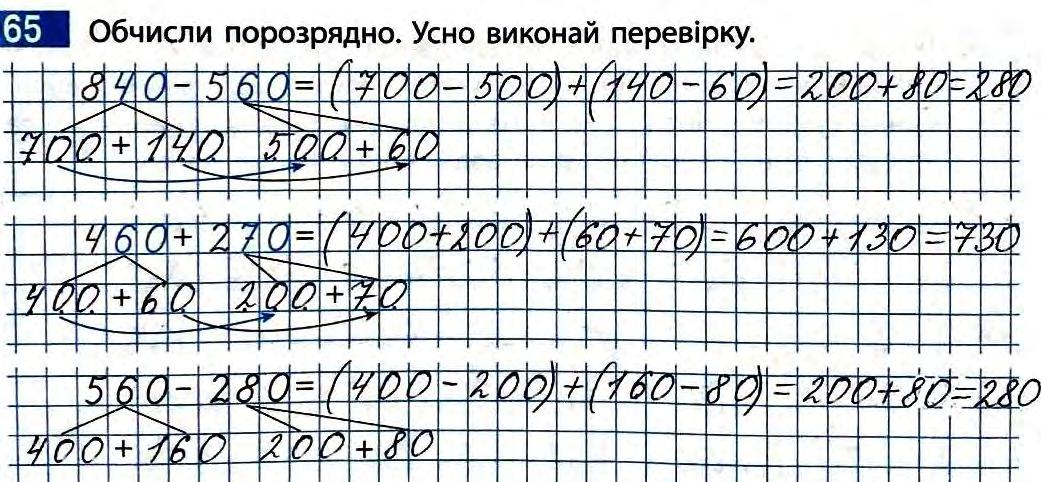 65 Обчисли порозрядно. Усно виконай перевірку.
840-560=(700-500)+(140-60)=200+80=280
700+140 500+60
460+270=(400+200)+(60+70)=600+130=730
400+60 200+70
560-280=(400-200)+(160-80)=200+80=280
400+160 200+80